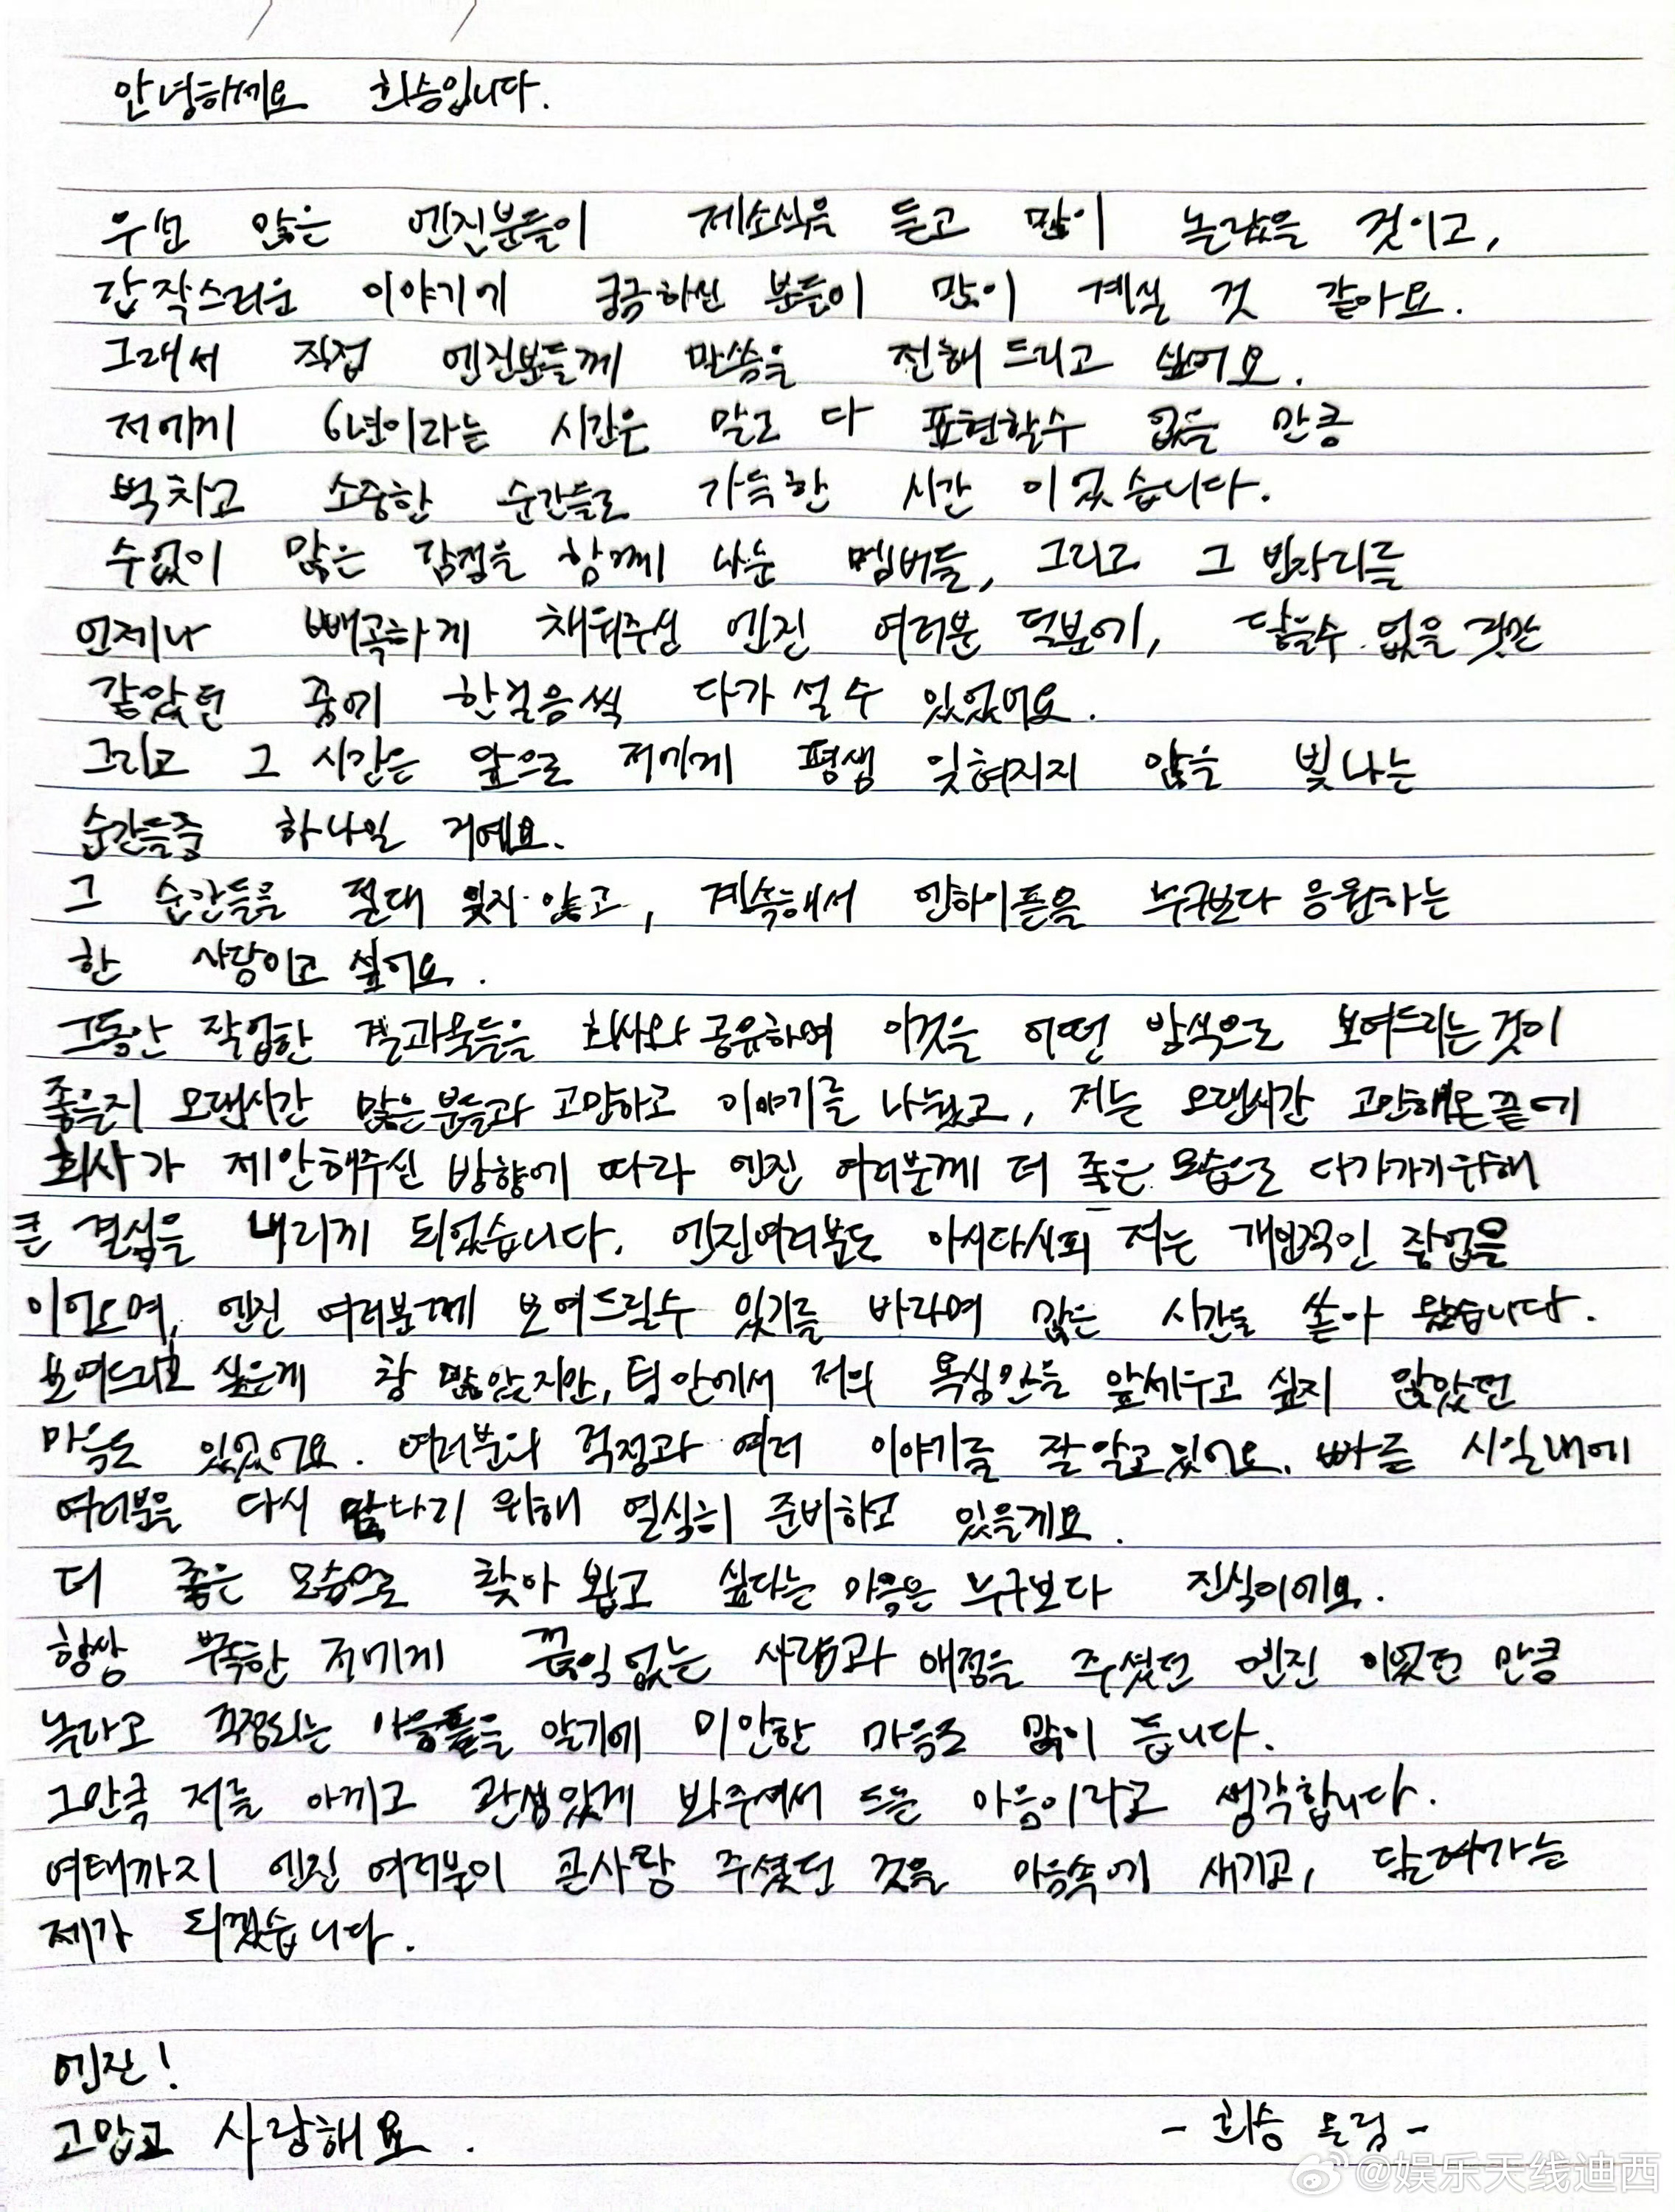 안녕하세요 희승입니다.
우선 많은 엔진분들이 제소식을 듣고 많이 놀랐을 것이고,
갑작스러운 이야기에 궁금하신 분들이 많이 계실 것 같아요.
그래서 직접 엔진분들께 말씀을 전해 드리고 싶어요.
저에게 6년이라는 시간은 말로 다 표현할수 없을 만큼
벅차고 소중한 순간들로 가득한 시간 이었습니다.
수없이 많은 감정을 함께 나눈 멤버들, 그리고 그 빈자리를
언제나 빼곡하게 채워주신 엔진 여러분 덕분에, 닿을수 없을 것만
같았던 꿈에 한걸음씩 다가 설 수 있었어요.
그리고 그 시간은 앞으로 저에게 평생 잊혀지지 않을 빛나는
순간들중 하나일 거예요.
그 순간들을 절대 잊지 않고, 계속해서 엔하이픈을 누구보다 응원하는
한 사람이고 싶어요.
그동안 작업한 결과물들을 회사와 공유하며 이것을 어떤 방식으로 보여드리는것이
좋을지 오랜시간 많은분들과 고민하고 이야기를 나눴고, 저는 오랜시간 고민해온끝에
회사가 제안해주신 방향에 따라 엔진 여러분께 더 좋은 모습으로 다가가기위해
큰 결심을 내리게 되었습니다. 엔진여러분도 아시다시피 저는 개인적인 작업을
이어오며, 엔진 여러분께 보여드릴수 있기를 바라며 많은 시간을 쏟아 왔습니다.
보여드리고 싶은게 참 많았지만, 팀 안에서 저의 욕심만을 앞세우고 싶지 않았던
마음도 있었어요. 여러분의 걱정과 여러 이야기를 잘 알고있어요. 빠른 시일내에
여러분을 다시 만나기 위해 열심히 준비하고 있을게요.
더 좋은 모습으로 찾아 뵙고 싶다는 마음은 누구보다 진심이에요.
항상 부족한 저에게 끊임없는 사랑과 애정을 주셨던 엔진 이었던 만큼
놀라고 걱정되는 마음들을 알기에 미안한 마음도 많이 듭니다.
그만큼 저를 아끼고 관심있게 봐주셔서 드는 마음이라고 생각합니다.
여태까지 엔진 여러분이 큰사랑 주셨던 것을 마음속에 새기고, 달려가는
제가 되겠습니다.
엔진!
고맙고 사랑해요.
- 희승 올림 -
@娱乐天线迪西